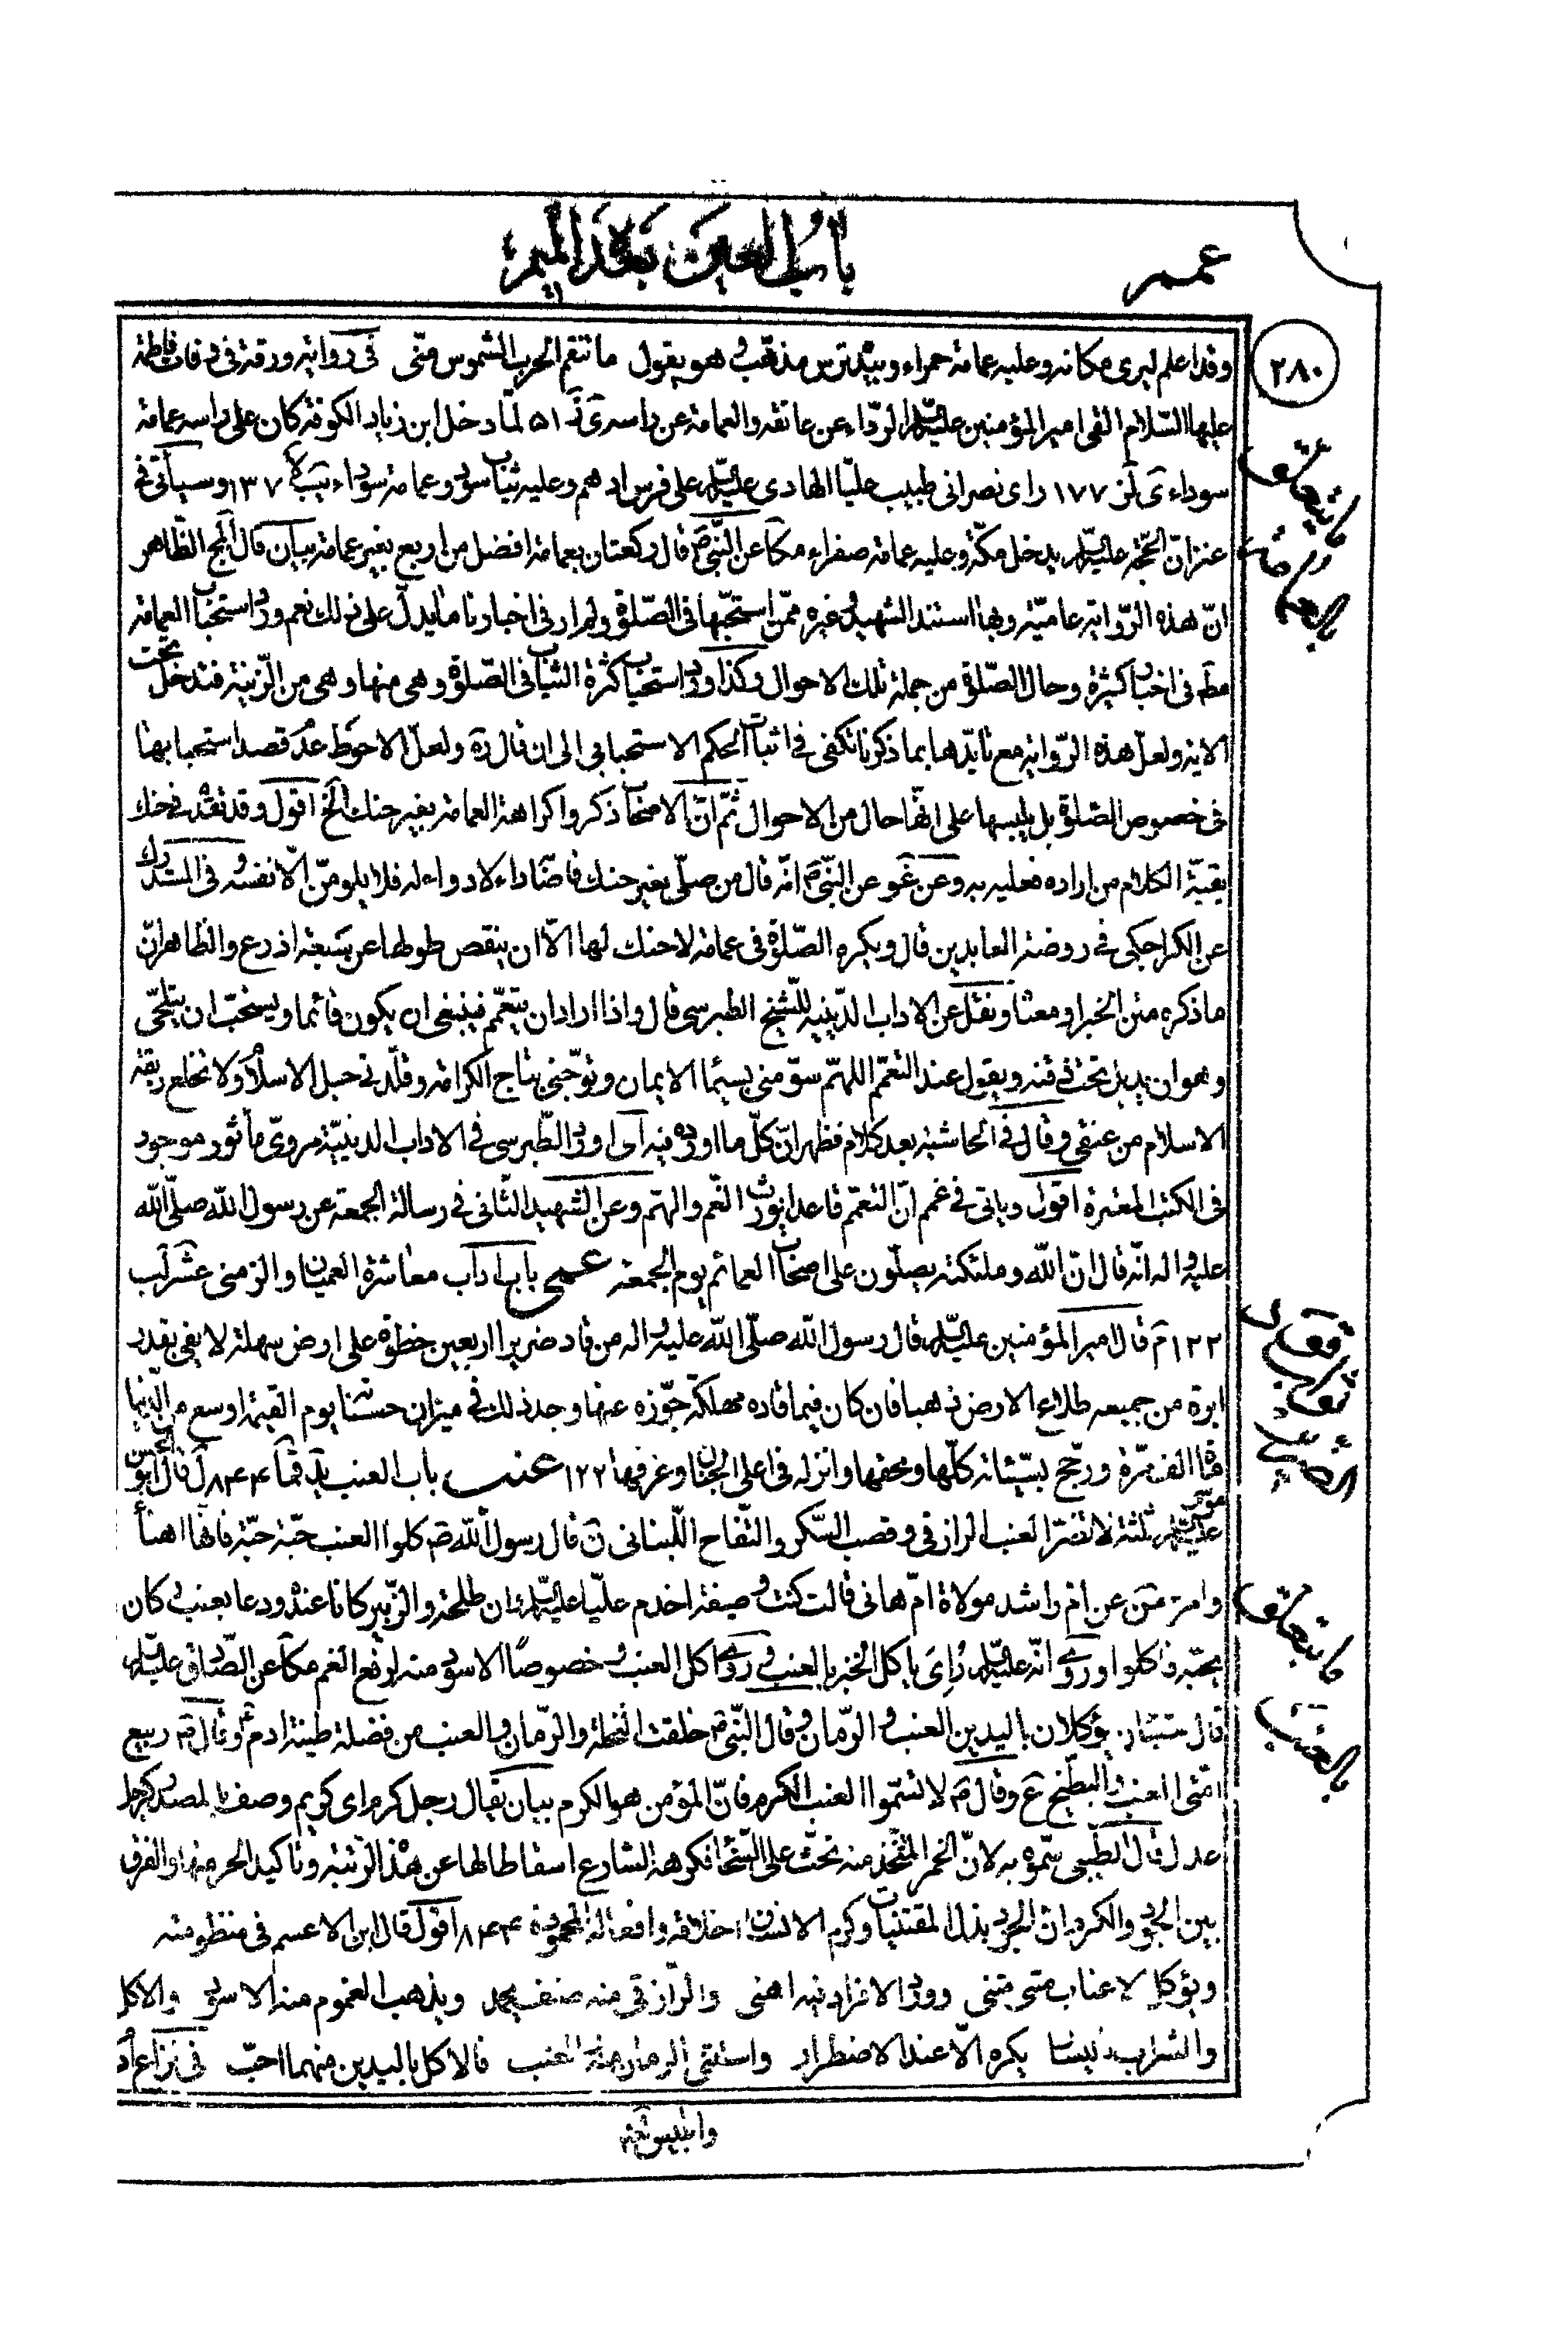 عمم
باب العين بعده الميم
٢٨٠
وقد اعلم ليرى مكانه وعليه عمامة حمراء وبيده ترس مذهّب وهو يقول ما تنقم الحرب الشموس منّى فى رواية ورقة فى وفات فاطمة
عليها السّلام القى امير المؤمنين عليه السّلم الردّاء عن عاتقه والعمامة عن راسه ى ٥١ لمّا دخل ابن زياد الكوفة كان على راسه عمامة
سوداء ى لز ١٧٧ راى نصرانى طبيب عليّا الهادى عليه السّلم على فرس ادهم وعليه ثياب سود وعمامة سوداء يب لا ١٣٧ وسيأتى فى
عنز انّ الحجّة عليه السّلم يدخل مكّة وعليه عمامة صفراء مكا عن النّبىّ ص قال ركعتان بعمامة افضل من اربع بغير عمامة بيان قال المج الظّاهر
انّ هذه الرّواية عاميّة وبها استند الشهيد وغيره ممّن استحبّها فى الصّلوة ولم ار فى اخبارنا ما يدلّ على ذلك نعم ورد استحباب العمامة
مطم فى اخبار كثيرة وحال الصّلوة من جملة تلك الاحوال وكذا ورد استحباب كثرة الثياب فى الصّلوة وهى منها وهى من الزّينة فتدخل تحت
الاية ولعلّ هذه الرّواية مع تايّدها بما ذكرنا تكفى فى اثبات الحكم الاستحبابى الى ان قال ره ولعلّ الاحوط عدم قصد استحبابها
فى خصوص الصّلوة بل يلبسها على انّها حال من الاحوال ثمّ انّ الاصحاب ذكروا كراهة العمامة بغير حنك الخ اقول وقد تقدّم فى حنك
بقيّة الكلام من اراده فعليه به وعن غو عن النّبىّ ص انّه قال من صلّى بغير حنك فاصابه داء لا دواء له فلا يلومنّ الّا نفسه وفى المستدرك
عن الكراجكى فى روضة العابدين قال ويكره الصّلوة فى عمامة لا حنك لها الّا ان ينقص طولها عن سبعة اذرع والظاهر انّ
ما ذكره متن الخبر او معناه ونقل عن الاداب الدّينيه للشّيخ الطبرسى قال واذا اراد ان يتعمّم فينبغى ان يكون قائما ويستحبّ ان يتلحّى
وهو ان يديل تحت ذقنه ويقول عند التعمّم اللهمّ سوّمنى بسيماء الايمان وتوّجنى بتاج الكرامة وقلّدنى حبل الاسلام ولا تخلع ربقة
الاسلام من عنقى وقال فى الحاشية بعد كلام فظهر انّ كلّ ما اورده فيه اى اورد الطّبرسى فى الاداب الدّينيّة مروىّ مأثور موجود
فى الكتب المعتبرة اقول وياتى فى غمم انّ التعمّم قاعدا يورث الغّم والهمّ وعن الشهيد الثّانى فى رسالة الجمعة عن رسول اللّه صلّى اللّه
عليه واله انّه قال انّ اللّه وملئكته يصلّون على اصحاب العمائم يوم الجمعة عمى باب اداب معاشرة العميان والزمنى عشر لب
١٢٢ م قال امير المؤمنين عليه السّلم قال رسول اللّه صلّى اللّه عليه واله من قاد ضريرا اربعين خطوة على ارض سهلة لا يفى بقدر
ابرة من جميعه طلاع الارض ذهبا فان كان فيما قاده مهلكة جوّزه عنها وجد ذلك فى ميزان حسناته يوم القيمة اوسع من الدّنيا
مائة الف مرّة ورجّح بسيّئاته كلّها ومحقها وانزله فى اعلى الجنان وغرفها ١٢٢ عنب باب العنب يد قما ٨٤٤ ل قال ابو الحسن موسى
عليه السّلم ثلثة لا تضرّ العنب الرازقى وقصب السّكر والتّفاح اللّبنانى ن قال رسول اللّه ص كلوا العنب حبّة حبّة فانّها اهنأ
وامرء سن عن امّ راشد مولاة امّ هانى قالت كنت وصيفة اخدم عليّا عليه السّلم وان طلحة والزّبير كانا عنده ودعا بعنب وكان
يحبّه فاكلوا وروى انّه عليه السّلم رُاِى ياكل الخبز بالعنب وروى اكل العنب وخصوصًا الاسود منه لرفع الغم مكا عن الصّادق عليه السّلم
قال شيئان يؤكلان باليدين العنب والرّمان وقال النّبىّ ص خلقت النخلة والرّمان والعنب من فضلة طينة ادم ع وقال ص ربيع
امّتى العنب والبطّيخ ع وقال ص لا تسّموا العنب الكرم فانّ المؤمن هو الكرم بيان يقال رجل كرم اى كريم وصف بالمصدر كرجل
عدل قال الطّيبى سمّوه به لانّ الخمر المتّخذ منه تحثّ على السّخاء فكرهه الشارع اسقاطا لها عن هذه الرّتبة وتاكيد الحرمتها والفرق
بين الجود والكرم انّ الجود بذل المقتنيات وكرم الانسان اخلاقه وافعاله المحمودة ٨٤٤ اقول قال ابن الاعسم فى منظومته
ويؤكل الاعناب مثنى مثنى وورد الافراد فيه اهنى والرّازقى منه صنف يحمد ويذهب الغموم منه الاسود والاكل
والشرب يكره الّا عند الاضطرار واستثنى الرمان منه العنب فالاكل باليدين منهما احبّ فى نزاع ادم
وابليس لعنه
ما يتعلّق بالعمامة
ثواب من قاد الضرير
ما يتعلّق بالعنب